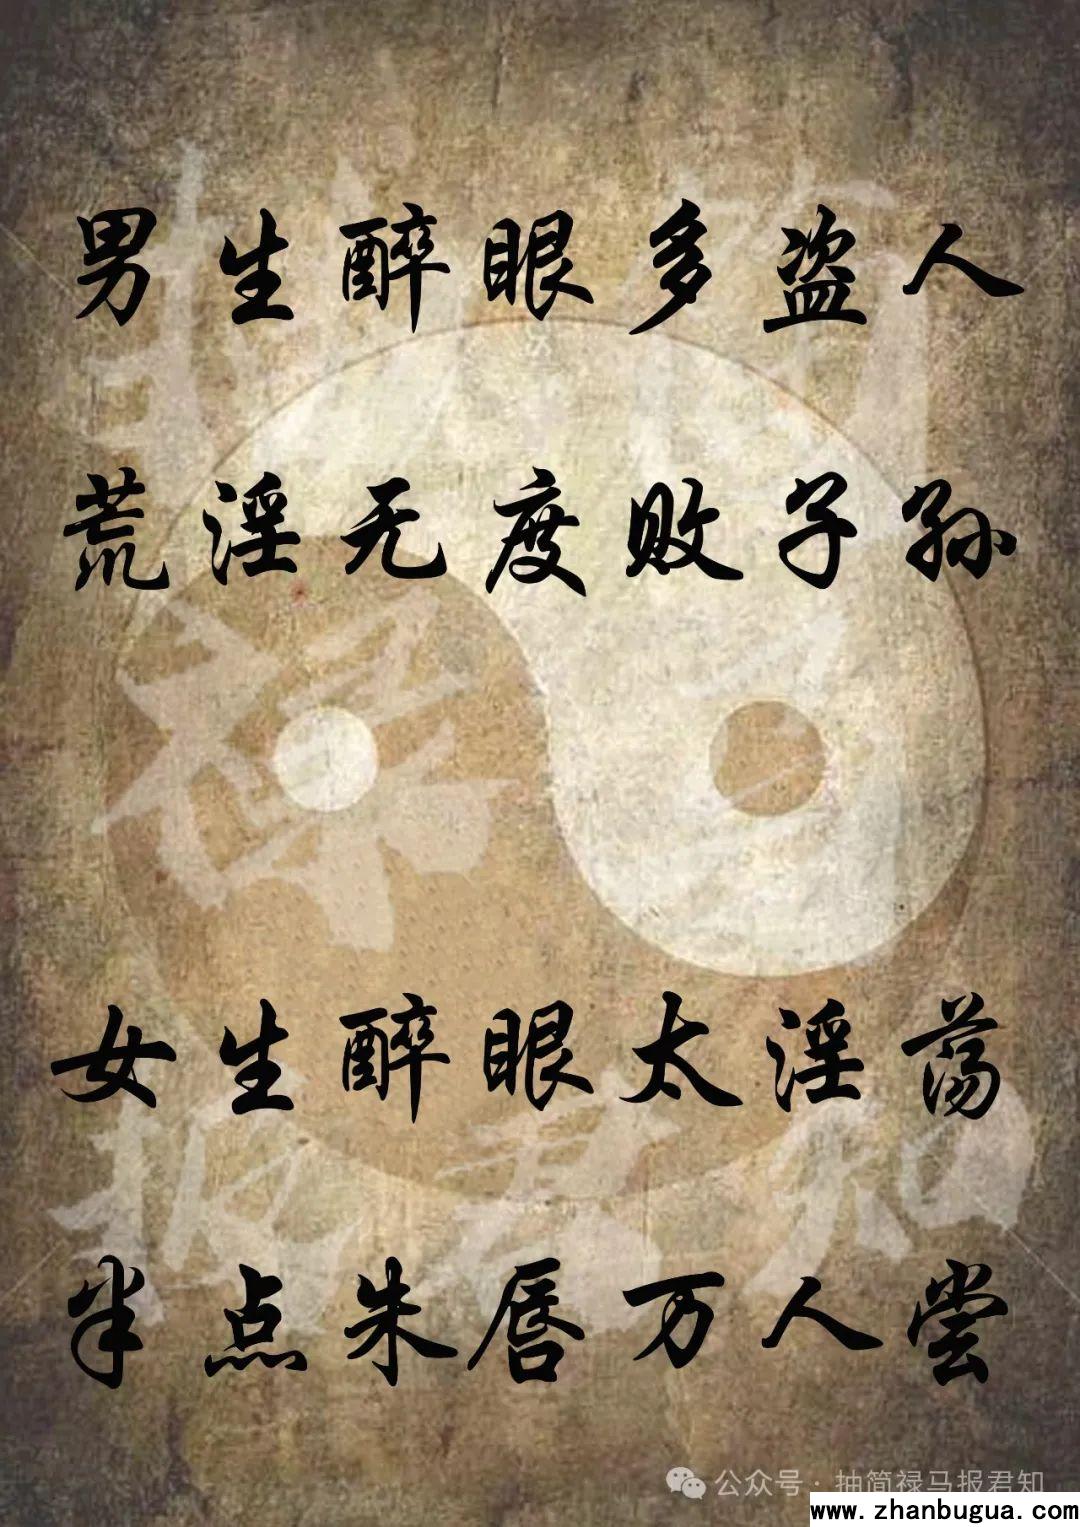 男生醉眼多盗人
荒淫无度败子孙
女生醉眼太淫荡
半点朱唇万人尝
抽简
禄马
报君知
公众号 · 抽简禄马报君知
www.zhanbugua.com